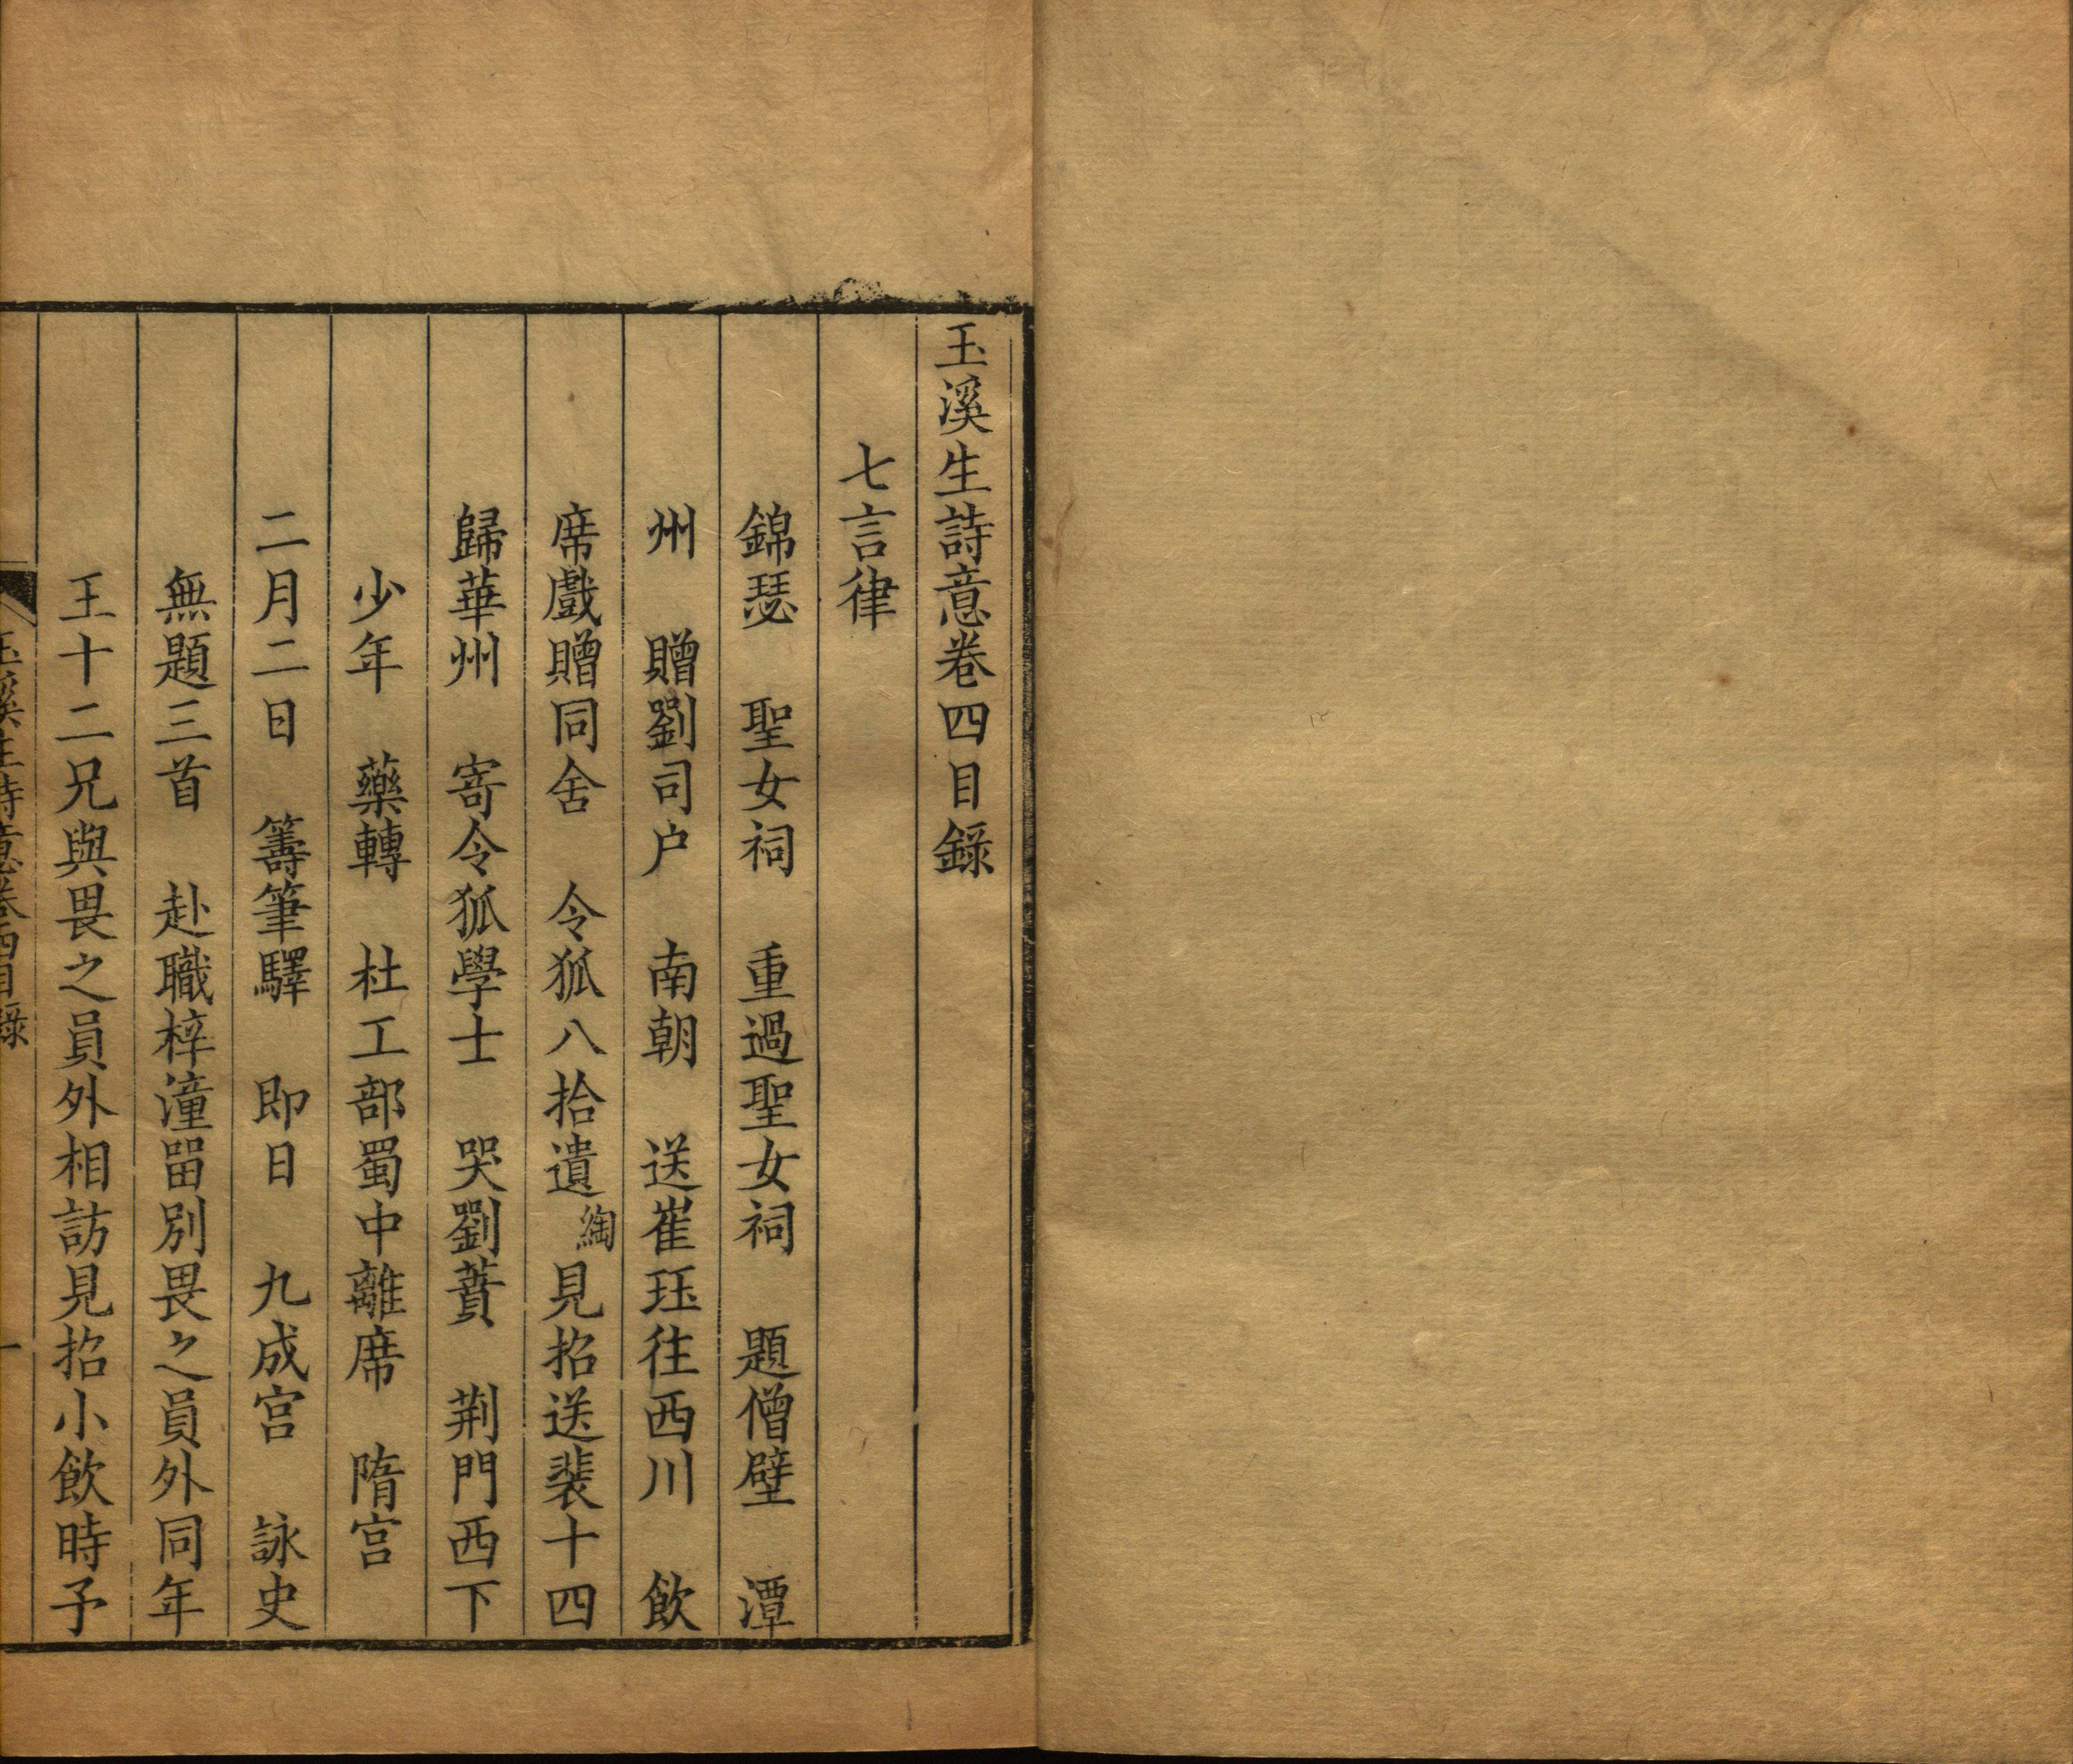 玉溪生詩意卷四目錄
七言律
錦瑟　聖女祠　重過聖女祠　題僧壁　潭
州　贈劉司户　南朝　送崔珏往西川　飲
席戲贈同舍　令狐八拾遺綯見招送裴十四
歸華州　寄令狐學士　哭劉蕡　荆門西下
少年　藥轉　杜工部蜀中離席　隋宮
二月二日　籌筆驛　即日　九成宮　詠史
無題三首　赴職梓潼留別畏之員外同年
王十二兄與畏之員外相訪見招小飲時予
玉溪生詩意卷四目錄　一